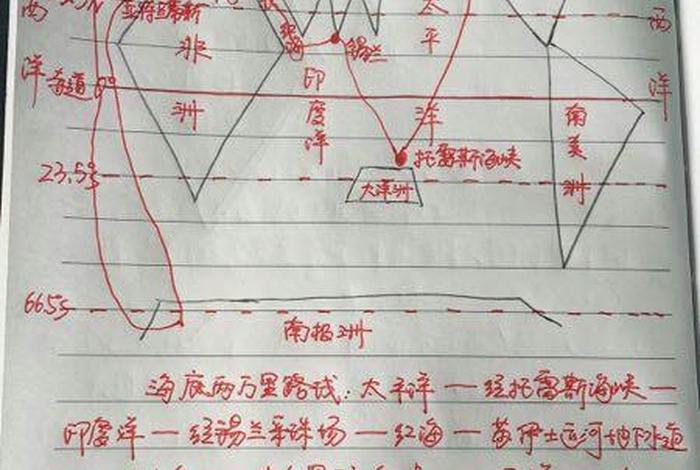 西 23.5N 亚特兰蒂斯 太 西
非 红海 锡兰 平
洋 赤道 0° 印 洋
洲 度 洋 南
洋 托雷斯海峡 美
23.5s 大洋洲 洲
66.5s
南极洲
海底两万里路线:太平洋—经托雷斯海峡—
印度洋—经锡兰采珠场—红海—苏伊士运河地下水道